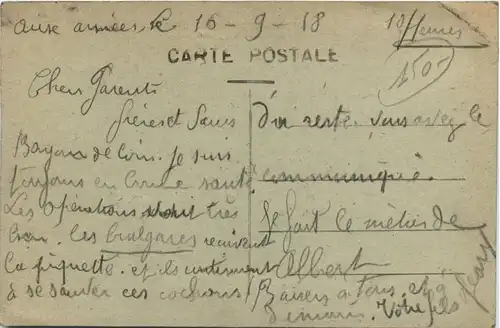 aux armées le 16 - 9 - 18 18 heures
CARTE POSTALE
1507
Chers Parents
frères et Sœurs
Bayons de loin. Je suis
toujours en bonne santé
Les opérations vont très
bien. les bulgares reçoivent
la piquette et ils
à se sauver ces cochons
Du reste vous avez le
communiqué.
Je fait le métier de
Albert
Baisers a tous et a
demain. Votre fils
Jean